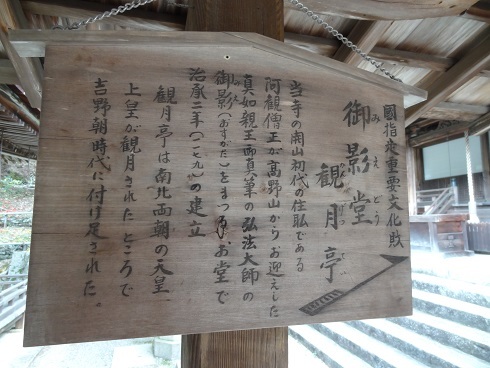 國指定重要文化財
御影堂
みえどう
観月亭
当寺の開山初代の住職である
阿観僧正が高野山からお迎えした
真如親王直真筆の弘法大師の
御影(おすがた)をまつるお堂で
治承二年(一一七九)の建立
観月亭は南北両朝の天皇
上皇が観月されたところで
吉野朝時代に付け足された。